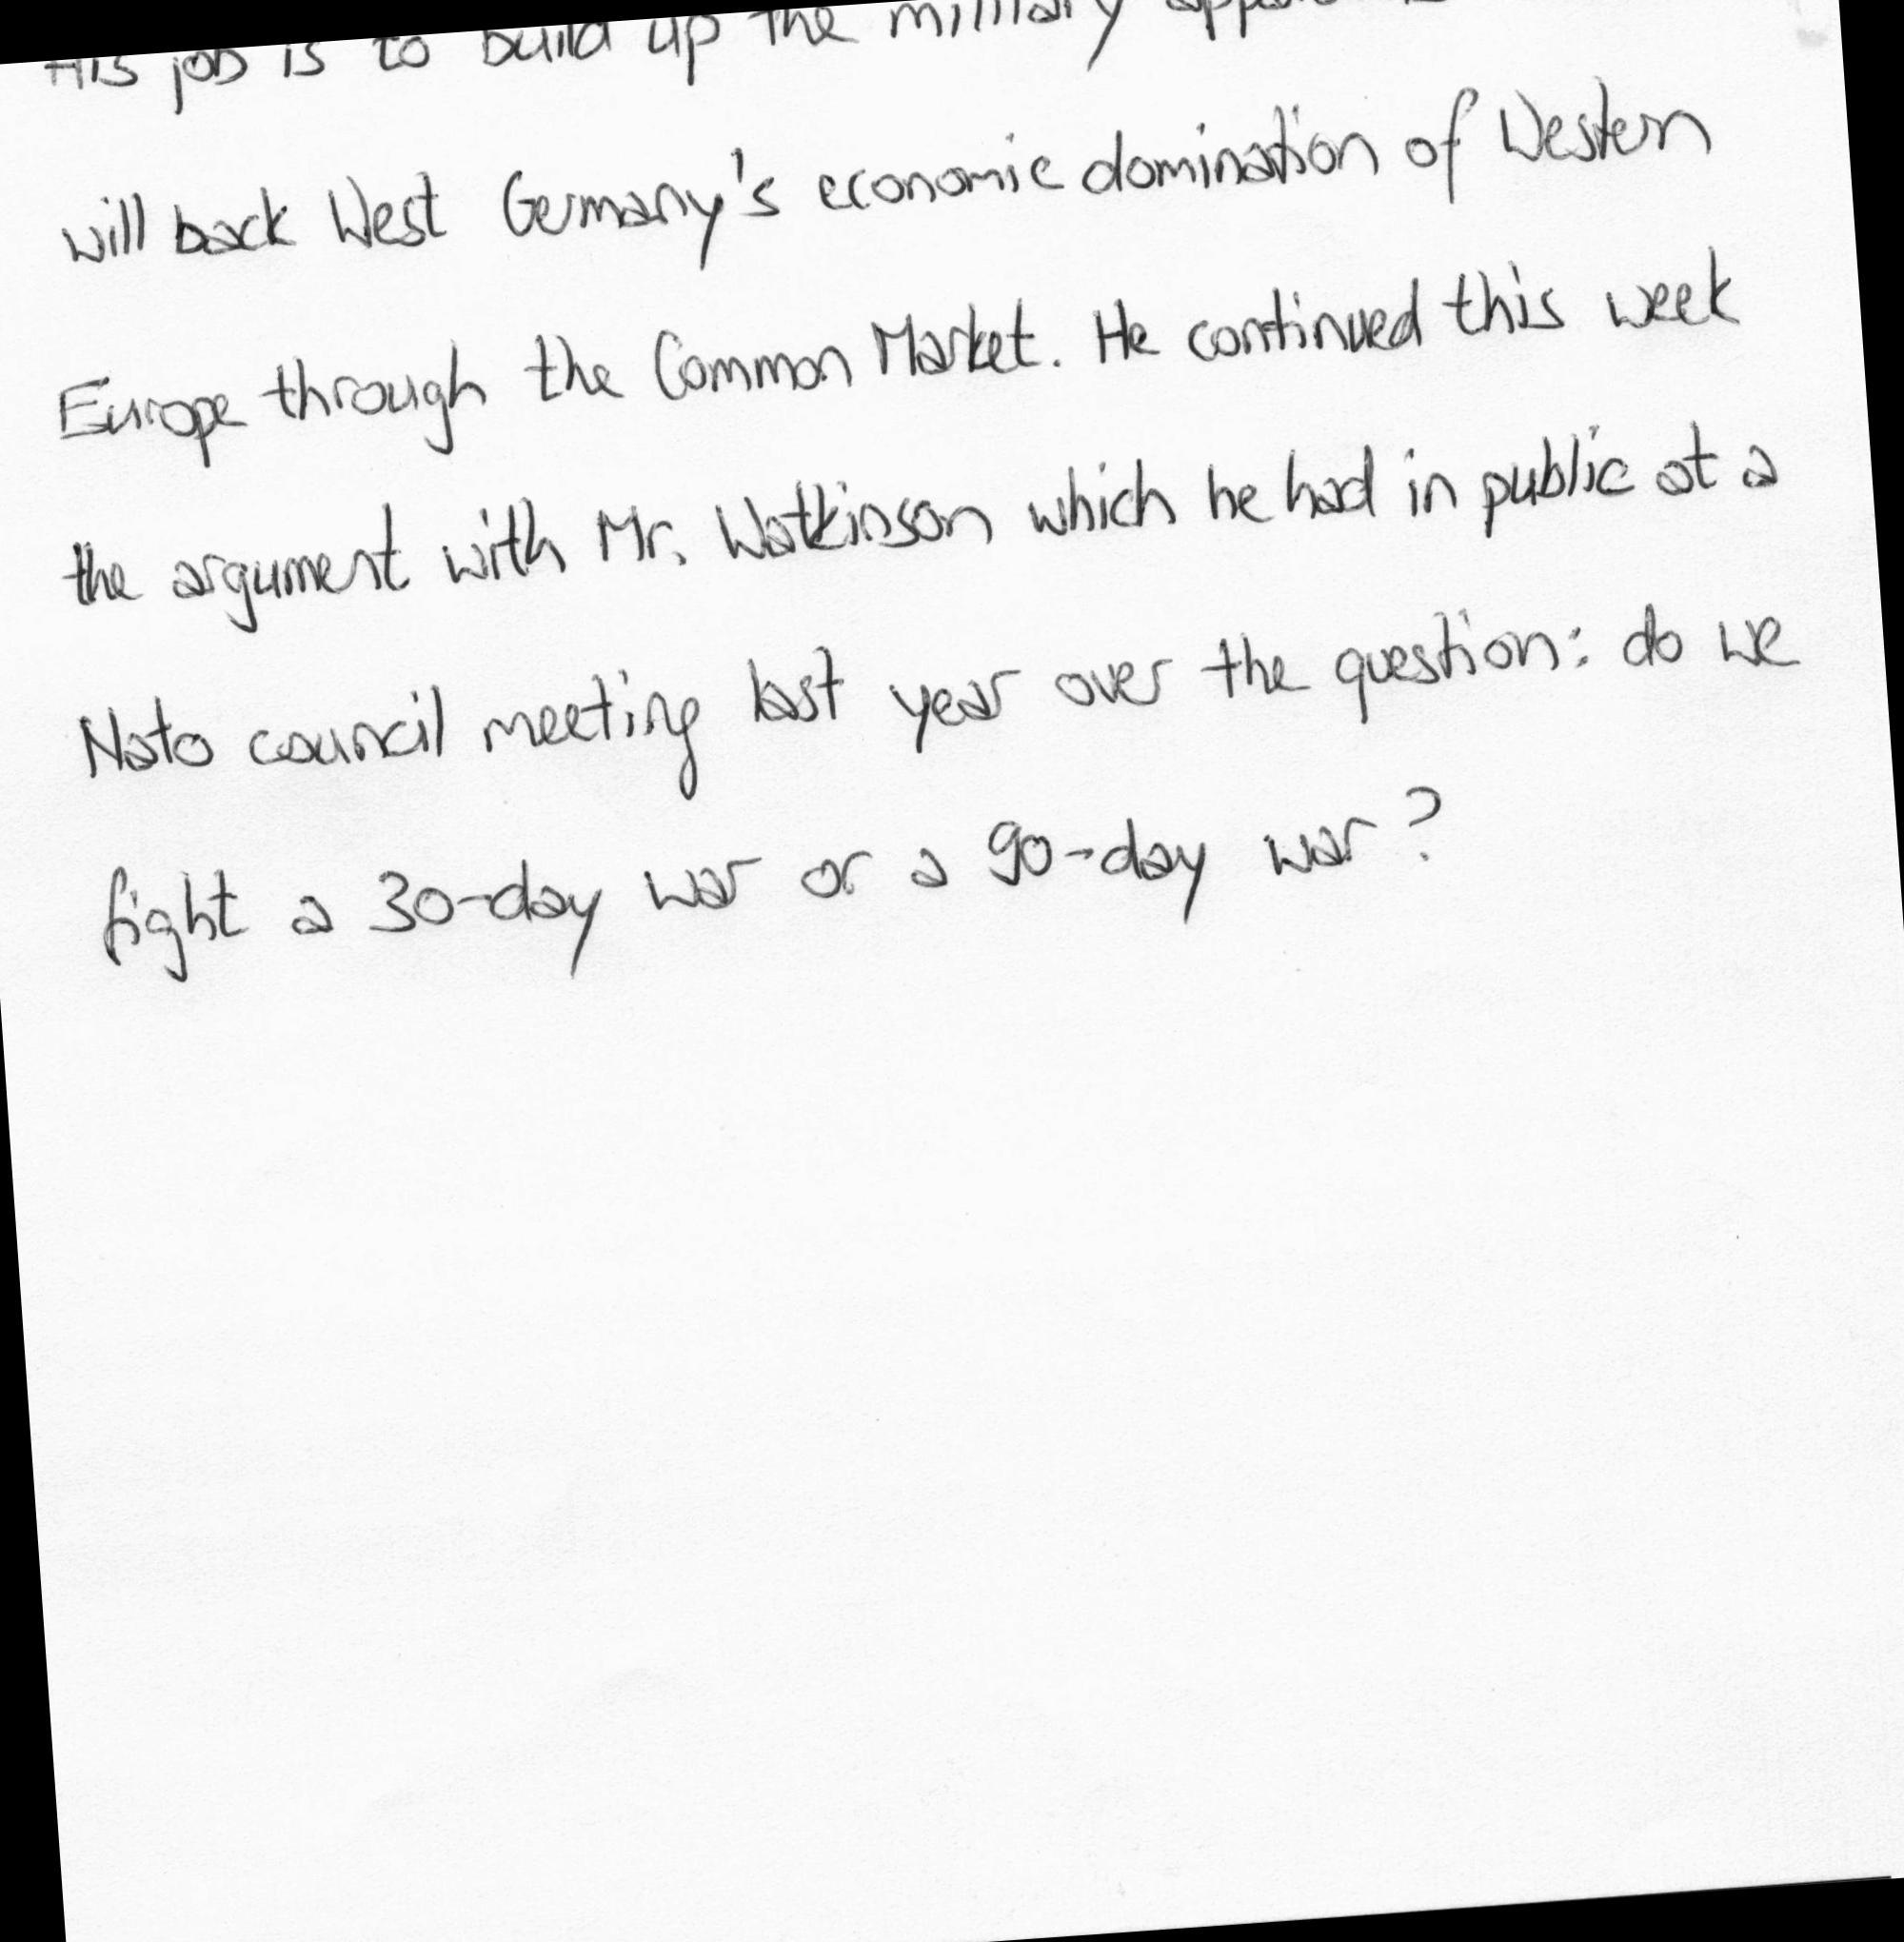 His job is to build up the military
will back West Germany's economic domination of Western
Europe through the Common Market. He continued this week
the argument with Mr. Watkinson which he had in public at a
Nato council meeting last year over the question: do we
fight a 30-day war or a 90-day war?